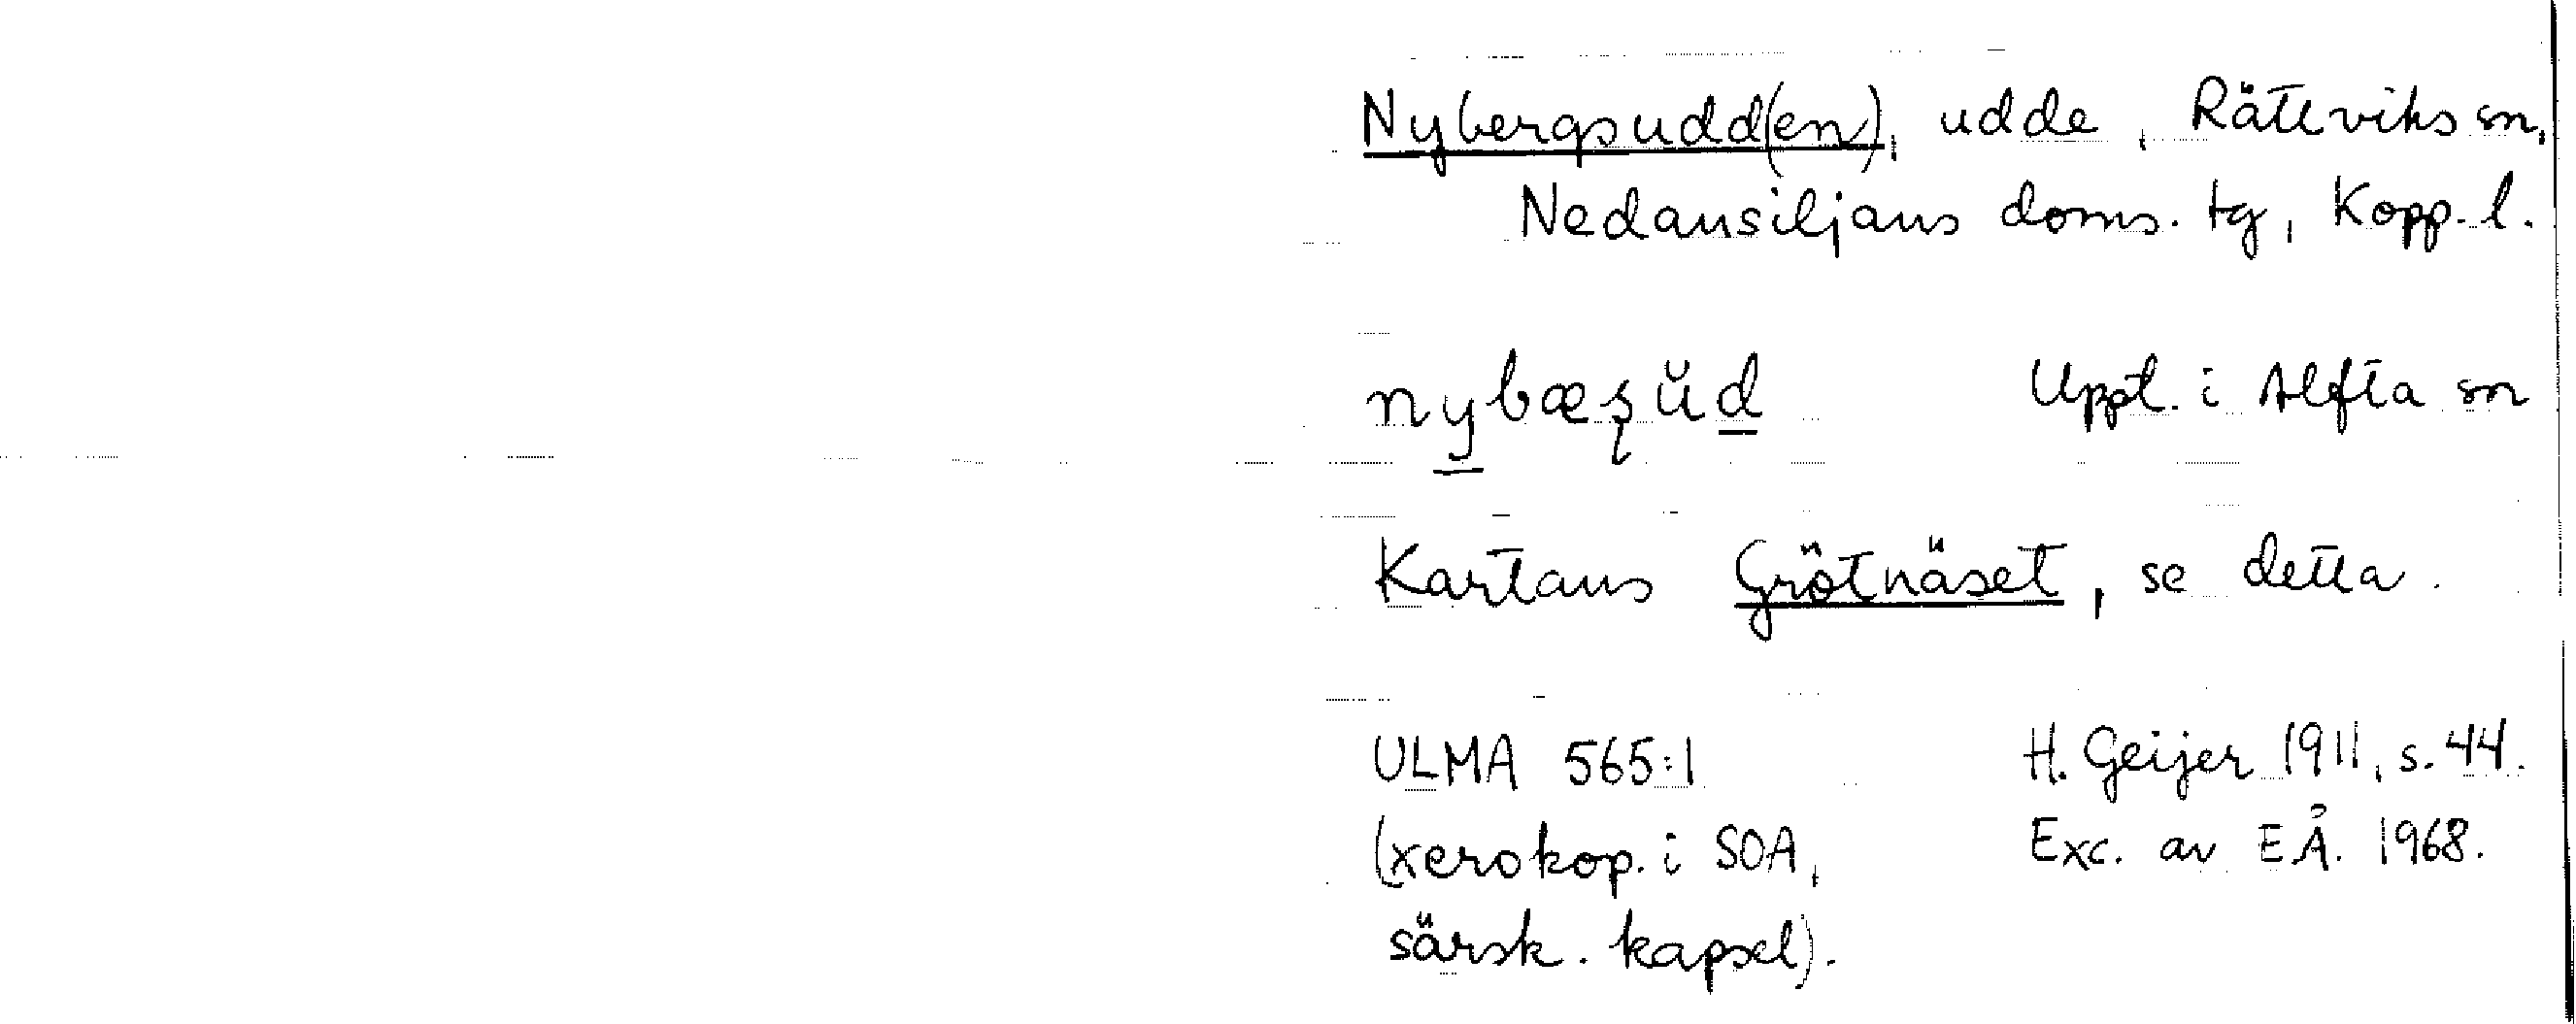 Nybergsudd(en), udde, Rättviks sn,
Nedansiljans doms. tg, Kopp. l.
nybæʂŭd Uppt. i Alfta sn
Kartans Grötnäset, se detta.
ULMA 565:1 H. Geijer 1911, s. 44.
(xerokop. i SOA, Exc. av E.Å. 1968.
särsk. kapsel).